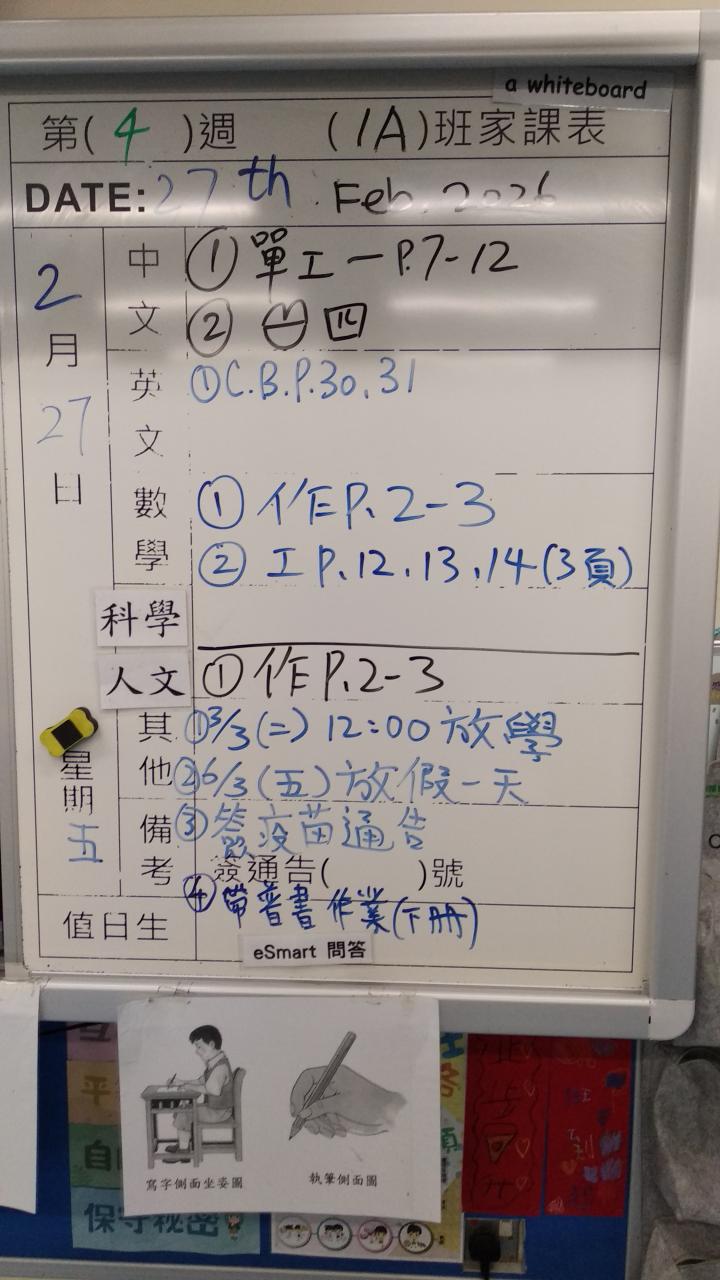 a whiteboard
第( 4 )週 (1A)班家課表
DATE: 27th Feb. 2026
2月27日
星期五
中文
① 單工一 P.7-12
② ㊀ 四
英文
① C.B.P.30,31
數學
① 作 P. 2-3
② 工 P. 12, 13, 14 (3頁)
科學
人文
① 作 P. 2-3
其他
① 3/3 (二) 12:00 放學
② 6/3 (五) 放假一天
備考
③ 簽疫苗通告
簽通告( )號
④ 帶普書 作業(下冊)
值日生
eSmart 問答
寫字側面坐姿圖
執筆側面圖
保守秘密